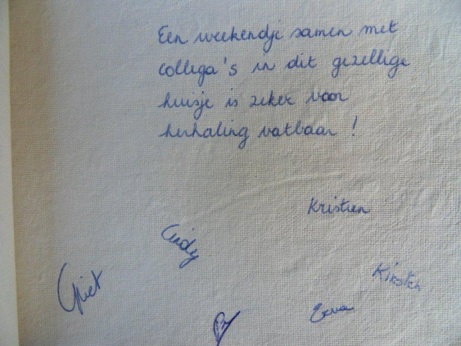 Een weekendje samen met
collega's in dit gezellige
huisje is zeker voor
herhaling vatbaar !
Kristien
Cindy
Griet
Kirsten